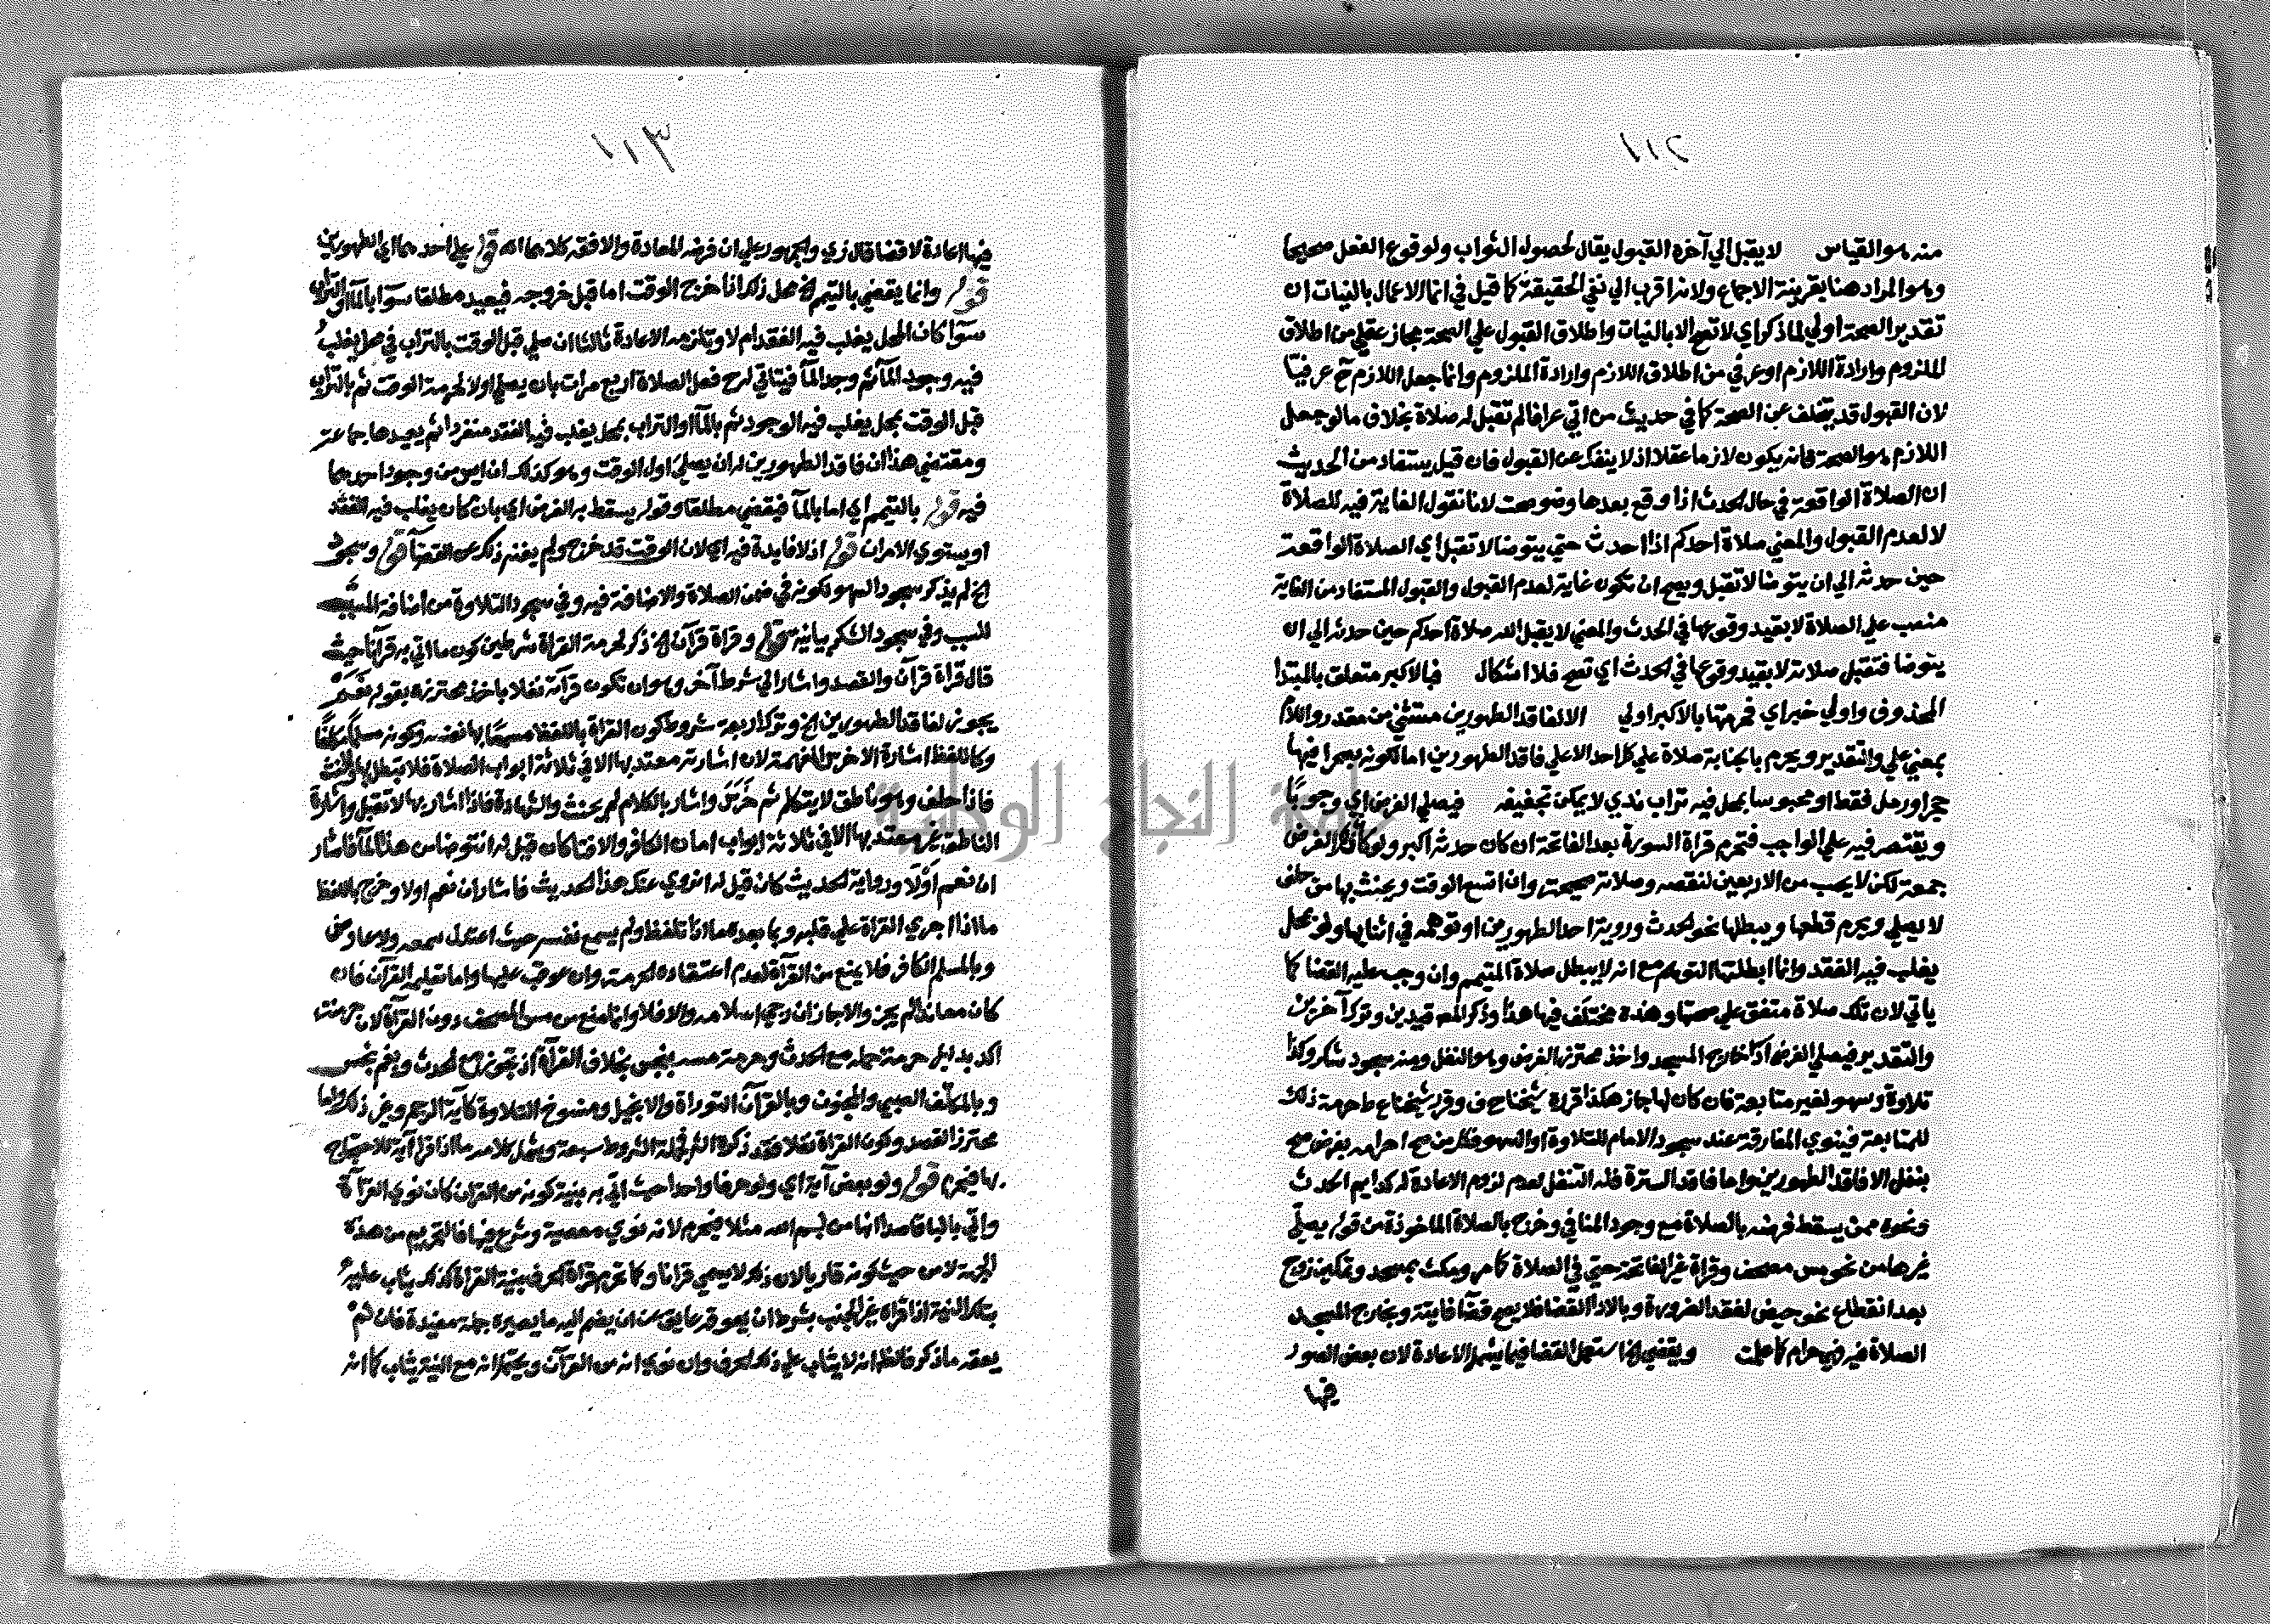 ١١٢
منه هو القياس لا يقبل الي آخره القبول يقال لحصول الثواب ولوقوع الفعل صحيحا
وهو المراد هنا بقرينة الاجماع ولانه اقرب الي نفي الحقيقة كما قيل في انما الاعمال بالنيات ان
تقدير الصحة اولي لما ذكر اي لا تصح الا بالنيات واطلاق القبول علي الصحة مجاز عقلي من اطلاق
الملزوم وارادة اللازم او عرفي من اطلاق اللازم وارادة الملزوم وانما جعل اللازم ح عرفيا
لان القبول قد يتخلف عن الصحة كما في حديث من اتي عرافا لم تقبل له صلاة بخلاف ما لو جعل
اللازم هو الصحة فانه يكون لازما عقلا اذ لا ينفك عن القبول فان قيل يستفاد من الحديث
ان الصلاة الواقعة في حال الحدث اذا وقع بعدها وضو صحت لانا نقول الغاية فيه للصلاة
لا لعدم القبول والمعني صلاة احدكم اذا احدث حتي يتوضا لا تقبل اي الصلاة الواقعة
حين حدثه الي ان يتوضا لا تقبل ويصح ان تكون غاية لعدم القبول والقبول المستفاد من الغاية
منصب علي الصلاة لا بقيد وقوعها في الحدث والمعني لا يقبل الله صلاة احدكم حين حدثه الي ان
يتوضا فتقبل صلاته لا بقيد وقوعها في الحدث اي تصح فلا اشكال فبالاكبر متعلق بالمبتدا
المحذوف واولي خبر اي فحرمتها بالاكبر اولي الا لفاقد الطهورين مستثني من مقدر واللام
بمعني علي والتقدير ويحرم بالجنابة صلاة علي كل احد الا علي فاقد الطهورين اما لكونه بصحرا فيها
حجر او رمل فقط او محبوسا بمحل فيه تراب ندي لا يمكن تجفيفه فيصلي الفرض اي وجوبا
ويقتصر فيه علي الواجب فتحرم قراة السورة بعد الفاتحة ان كان حدثه اكبر ولو كان الفرض
جمعة لكن لا يحسب من الاربعين لنقصه وصلاته صحيحة وان اتسع الوقت ويحنث بها من حلف
لا يصلي ويحرم قطعها ويبطلها نحو الحدث وروية احد الطهورين او توهمه في اثنايها ولو بمحل
يغلب فيه الفقد وانما ابطلتها التوهم مع انه لا يبطل صلاة المتيمم وان وجب عليه القضا كما
ياتي لان تلك صلاة متفق علي صحتها وهذه مختلف فيها هذا وذكر المص قيدين وترك آخرين
والتقدير فيصلي الفرض اذا خارج المسجد واخذ محترزها الفرض وهو النفل ومنه سجود شكر وكذا
تلاوة وسهو لغير متابعة فان كان لها جاز هكذا قرره شيخنا ح ف وقرر شيخنا ع ط حرمة ذلك
للمتابعة فينوي المفارقة عند سجود الامام للتلاوة او السهو فكل من صح احرامه بفرض صح
بنفل الا فاقد الطهورين واما فاقد السترة فله التنفل لعدم لزوم الاعادة له كدايم الحدث
ونحوه ممن يسقط فرضه بالصلاة مع وجود المنافي وخرج بالصلاة الماخوذة من قوله يصلي
غيرها من نحو مس مصحف وقراة غير الفاتحة حتي في الصلاة كما مر ومكث بمسجد وتمكين زوج
بعد انقطاع نحو حيض لفقد الضرورة وبالادا القضا فلا يصح قضا فايتة وبخارج المسجد
الصلاة فيه فهي حرام كما علمت ويقضي الخ استعمل القضا فيما يشمل الاعادة لان بعض الصور
فيها
١١٣
فيها اعادة لا قضا قال زي والجمهور علي ان فرضه المعادة والافقه كلاهما اه قوله علي احدهما اي الطهورين
قوله وانما يقضي بالتيمم الخ محل ذلك اذا خرج الوقت اما قبل خروجه فيعيد مطلقا سوا بالماء او التراب
سوا كان المحل يغلب فيه الفقد ام لا وتلزمه الاعادة ثالثا ان صلي قبل الوقت بالتراب في محل يغلب
فيه وجود الماء ثم وجد الماء فيتاتي له ح فعل الصلاة اربع مرات بان يصلي اولا لحرمة الوقت ثم بالتراب
قبل الوقت بمحل يغلب فيه الوجود ثم بالماء او التراب بمحل يغلب فيه الفقد منفردا ثم يعيدها جماعة
ومقتضي هذا ان فاقد الطهورين له ان يصلي اول الوقت وهو كذلك ان ايس من وجود احدهما
فيه قوله بالتيمم اي اما بالماء فيقضي مطلقا وقوله يسقط به الفرض اي بان كان يغلب فيه الفقد
او يستوي الامران قوله اذ لا فايدة فيه اي لان الوقت قد خرج ولم يغنه ذلك عن القضا قوله وسجود
الخ لم يذكر سجود السهو لكونه في ضمن الصلاة والاضافة فيه وفي سجود التلاوة من اضافة المسبب
للسبب وفي سجود الشكر بيانية قوله وقراة قرآن الخ ذكر لحرمة القراة شرطين كون ما اتي به قرآنا حيث
قال قراة قرآن والقصد واشار الي شرط آخر وهو ان تكون قرآنه نفلا باخذ محترزه بقوله
يجوز لفاقد الطهورين الخ وترك اربعة شروط كون القراة باللفظ مسمعا بها نفسه وكونه مسلما مكلفا
وكاللفظ اشارة الاخرس المفهمة لان اشارته معتد بها الا في ثلاثة ابواب الصلاة فلا تبطل بها والحنث
فاذا حلف وهو ناطق لا يتكلم ثم خرس واشار بالكلام لم يحنث والشهادة فاذا اشار بها لا تقبل واشارة
الناطق غير معتد بها الا في ثلاثة ابواب امان الكافر والافتا كان قيل له انتوضا من هذا الماء فاشار
ان نعم اولا ورواية الحديث كان قيل له انروي عنك هذا الحديث فاشار ان نعم اولا وخرج باللفظ
ما اذا اجري القراة علي قلبه وبما بعده ما اذا تلفظ ولم يسمع نفسه حيث اعتدل سمعه ولا عارض
وبالمسلم الكافر فلا يمنع من القراة لعدم اعتقاده الحرمة وان عوقب عليها واما تعليمه القرآن فان
كان معاندا لم يجز والا جاز ان رجي اسلامه والا فلا وانما منع من مس المصحف دون القراة لان حرمته
اكد بدليل حرمة حمله مع الحدث وحرمة مسه بنجس بخلاف القراة اذ تجوز مع الحدث وبفم نجس
وبالمكلف الصبي والمجنون وبالقرآن التوراة والانجيل ومنسوخ التلاوة كاية الرجم وغير ذلك واما
محترز القصد وكون القراة نفلا فقد ذكره الشرفجلة الشروط سبعة ويشمل كلامه ما اذا قرا آية للاحتجاج
بها فيحرم قوله ولو بعض آية اي ولو حرفا واحدا حيث اتي به بنية كونه من القرآن كان نوي القراة
واتي بالبا قاصدا انها من بسم الله مثلا فيحرم لانه نوي معصية وشرع فيها فالتحريم من هذه
الجهة لا من حيث كونه قاريا لان ذلك لا يسمي قرانا وكما تحرم قراة الحرف بنية القراة كذلك يثاب عليه
بتلك النية اذا قراه غير الجنب بشرط ان يعوقه عايق عن ان يضم اليه ما يصيره جملة مفيدة فان لم
يعقه ما ذكر فالظاهر انه لا يثاب علي ذلك الحرف وان نوي انه من القرآن ويحتمل انه مع النية يثاب كما انه
جامعة النجاح الوطنية